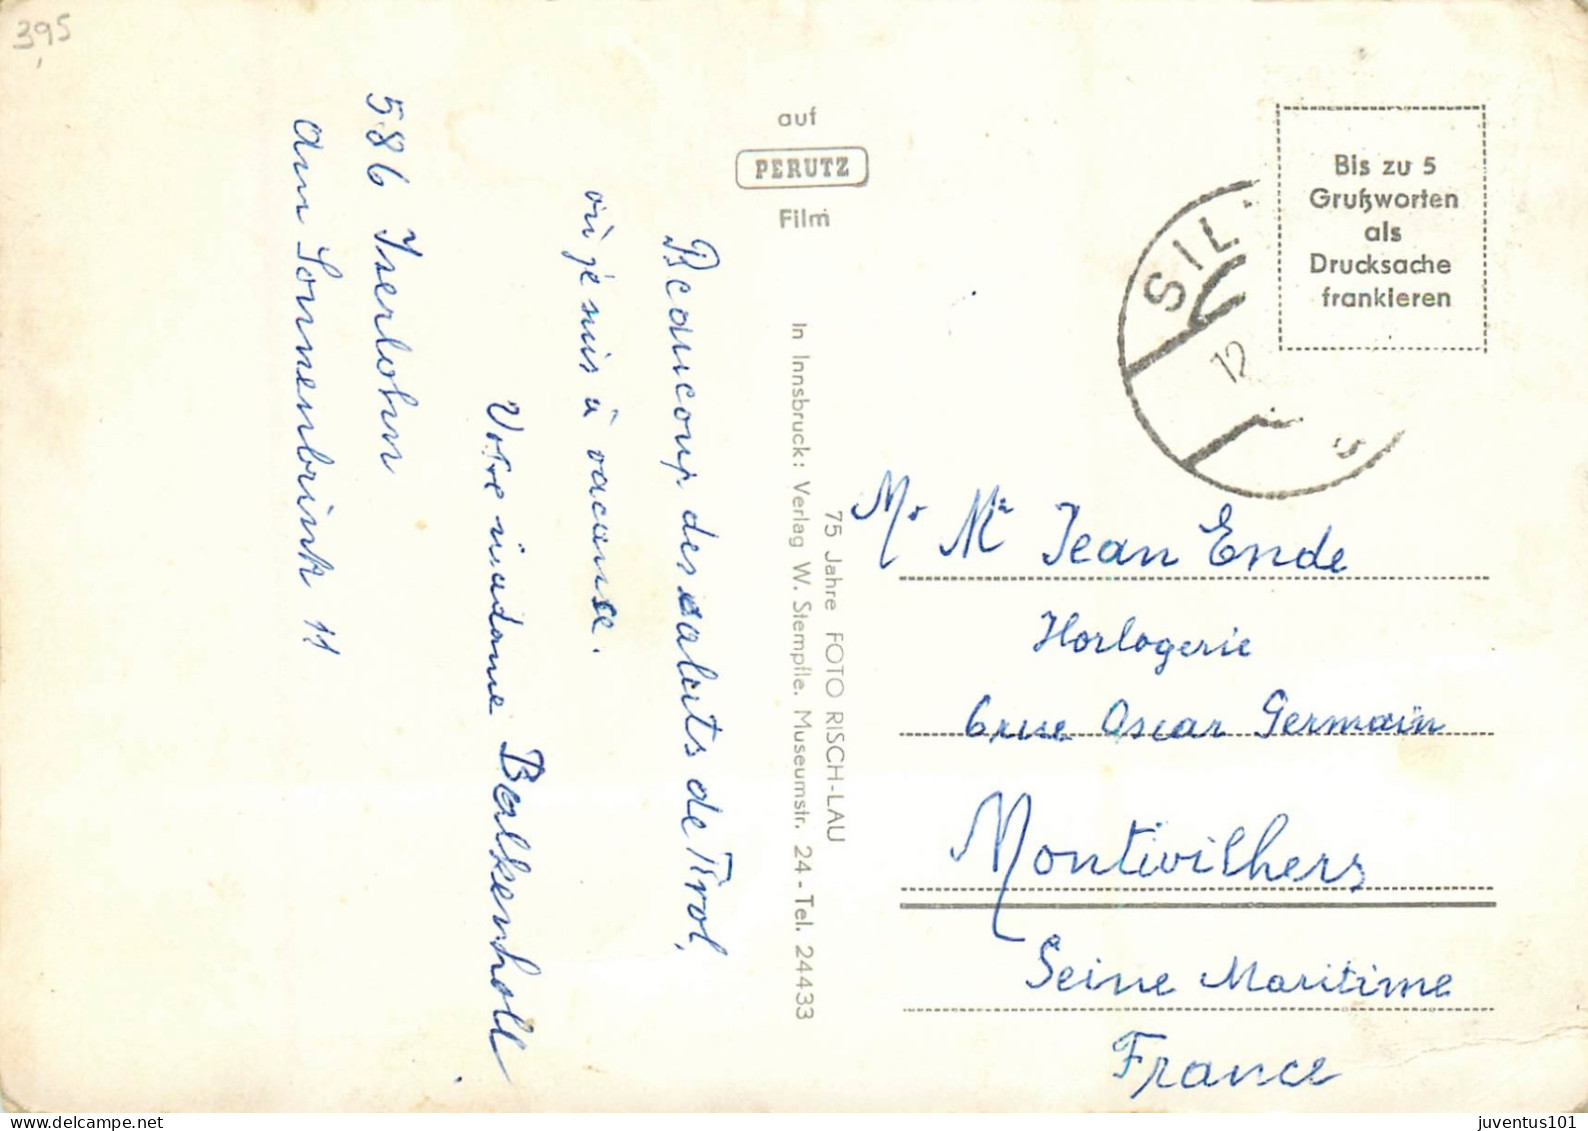 395
Beaucoup des saluts de Tirol,
où je suis à vacanse.
Votre madame Balkenholl
586 Iserlohn
Am Sonnenbrink 11
auf
PERUTZ
Film
In Innsbruck: Verlag W. Stempfle, Museumstr. 24 - Tel. 24433
75 Jahre FOTO RISCH-LAU
Bis zu 5
Grußworten
als
Drucksache
frankieren
SIL
12
Mr Me Jean Ende
Horlogerie
6 rue Oscar Germain
Montivilhers
Seine Maritime
France
juventus101